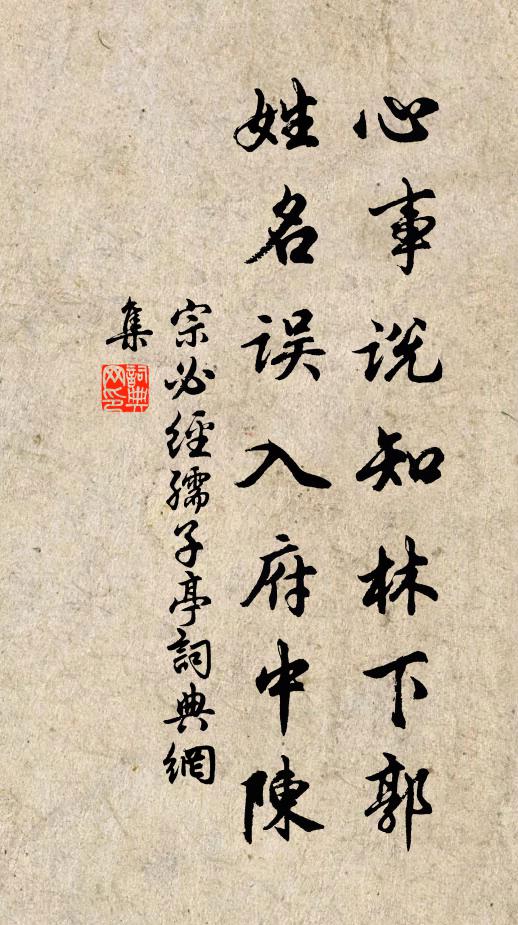 心事说知林下郭
姓名误入府中陳
宗必經孺子亭詞典網
集
詞典
网印